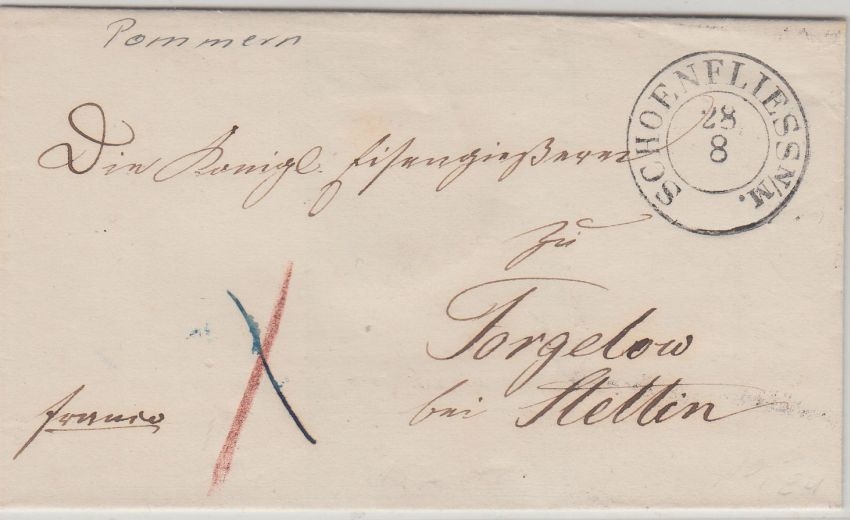 Pommern
SCHOENFLIESS N/M.
28
8
Die Königl. Eisengießerei
zu
Torgelow
bei Stettin
franco